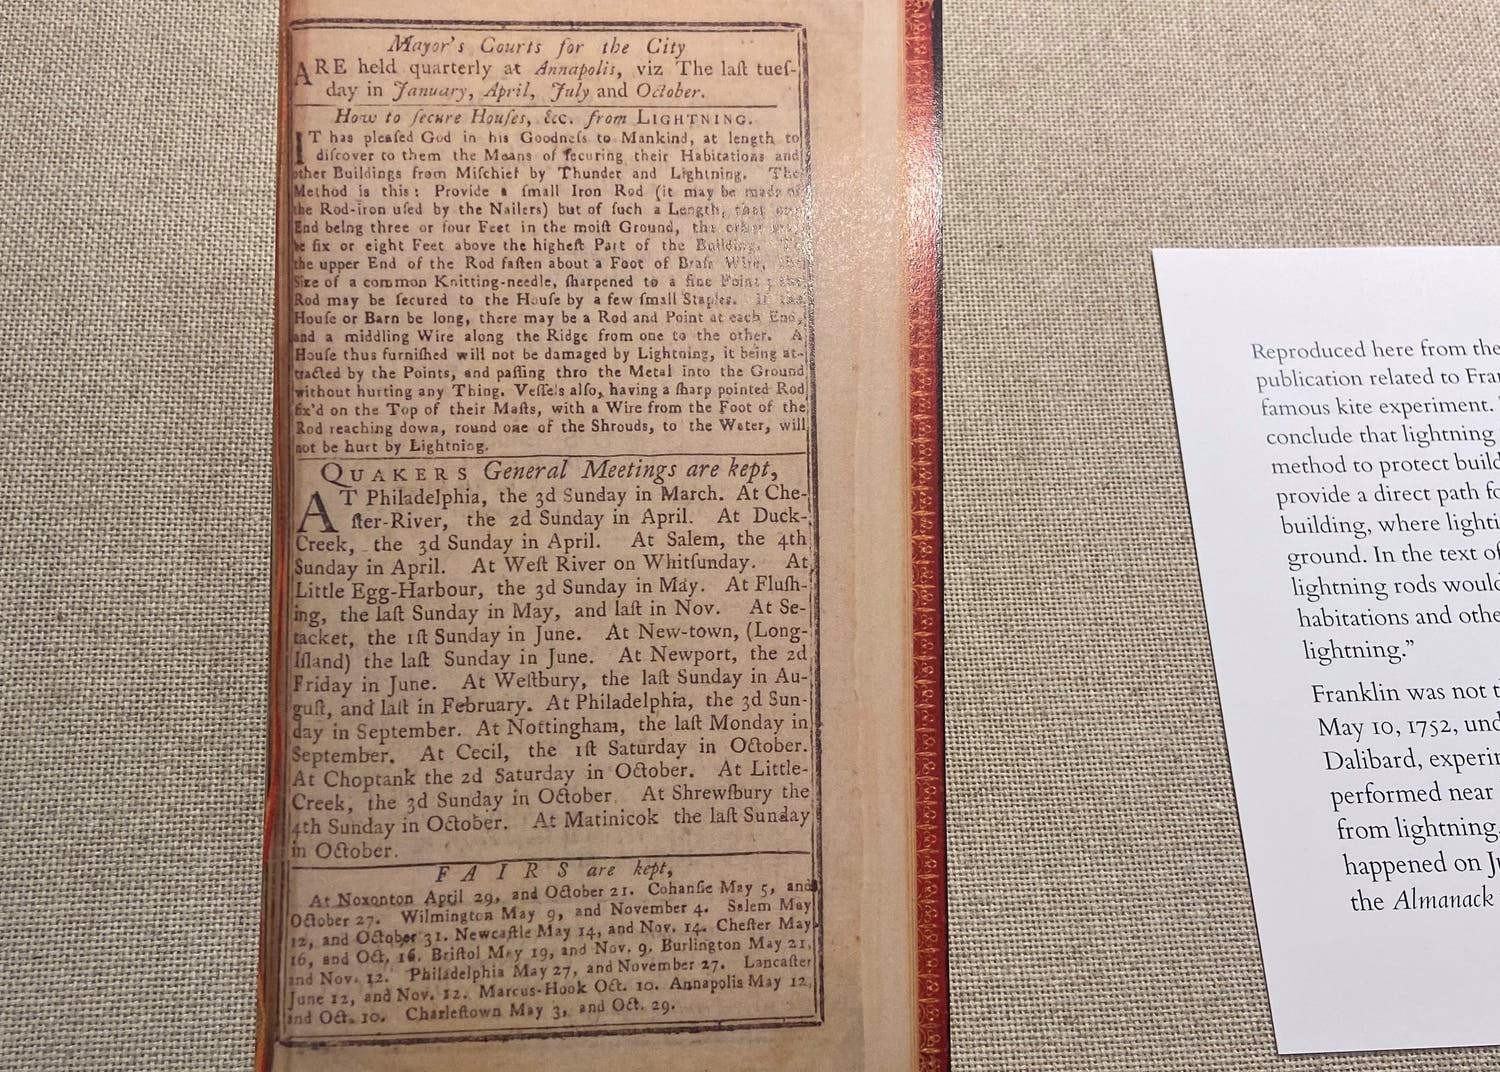 Mayor's Courts for the City
ARE held quarterly at Annapolis, viz The laſt tueſ-
day in January, April, July and October.
How to ſecure Houſes, &c. from LIGHTNING.
IT has pleaſed God in his Goodneſs to Mankind, at length to
diſcover to them the Means of ſecuring their Habitations and
other Buildings from Miſchief by Thunder and Lightning. The
Method is this: Provide a ſmall Iron Rod (it may be made of
the Rod-iron uſed by the Nailers) but of ſuch a Length, that one
End being three or four Feet in the moiſt Ground, the other may
be ſix or eight Feet above the higheſt Part of the Building. To
the upper End of the Rod faſten about a Foot of Braſs Wire, the
Size of a common Knitting-needle, ſharpened to a fine Point; the
Rod may be ſecured to the Houſe by a few ſmall Staples. If the
Houſe or Barn be long, there may be a Rod and Point at each End,
and a middling Wire along the Ridge from one to the other. A
Houſe thus furniſhed will not be damaged by Lightning, it being at-
tracted by the Points, and paſſing thro the Metal into the Ground
without hurting any Thing. Veſſels alſo, having a ſharp pointed Rod
fix'd on the Top of their Maſts, with a Wire from the Foot of the
Rod reaching down, round one of the Shrouds, to the Water, will
not be hurt by Lightning.
QUAKERS General Meetings are kept,
AT Philadelphia, the 3d Sunday in March. At Che-
ſter-River, the 2d Sunday in April. At Duck-
Creek, the 3d Sunday in April. At Salem, the 4th
Sunday in April. At Weſt River on Whitſunday. At
Little Egg-Harbour, the 3d Sunday in May. At Fluſh-
ing, the laſt Sunday in May, and laſt in Nov. At Se-
tacket, the 1ſt Sunday in June. At New-town, (Long-
Iſland) the laſt Sunday in June. At Newport, the 2d
Friday in June. At Weſtbury, the laſt Sunday in Au-
guſt, and laſt in February. At Philadelphia, the 3d Sun-
day in September. At Nottingham, the laſt Monday in
September. At Cecil, the 1ſt Saturday in October.
At Choptank the 2d Saturday in October. At Little-
Creek, the 3d Sunday in October. At Shrewſbury the
4th Sunday in October. At Matinicok the laſt Sunday
in October.
FAIRS are kept,
At Noxonton April 29, and October 21. Cohanſie May 5, and
October 27. Wilmington May 9, and November 4. Salem May
12, and October 31. Newcaſtle May 14, and Nov. 14. Cheſter May
16, and Oct, 16. Briſtol May 19, and Nov. 9. Burlington May 21,
and Nov. 12. Philadelphia May 27, and November 27. Lancaſter
June 12, and Nov. 12. Marcus-Hook Oct. 10. Annapolis May 12,
and Oct. 10. Charleſtown May 3, and Oct. 29.
Reproduced here from the
publication related to Fran
famous kite experiment.
conclude that lightning
method to protect build
provide a direct path fo
building, where lighti
ground. In the text of
lightning rods would
habitations and othe
lightning.”
Franklin was not t
May 10, 1752, und
Dalibard, experim
performed near
from lightning,
happened on Ju
the Almanack